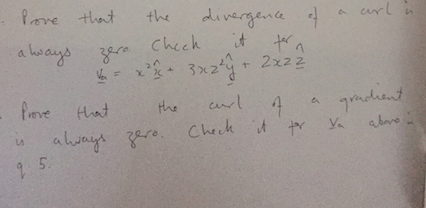 . Prove that the divergence of a curl is
always zero. Check it for
v̲a = x² x̂ + 3xz² ŷ + 2xz ẑ
. Prove that the curl of a gradient
is always zero. Check it for v̲a above in
q 5.